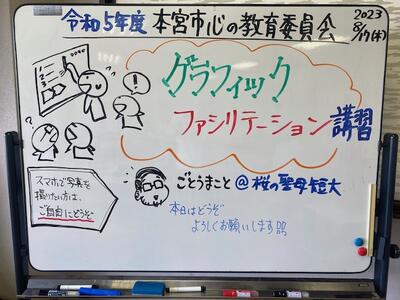 令和5年度 本宮市心の教育委員会
2023
8/17(木)
グラフィック
ファシリテーション講習
スマホで写真を
撮りたい方は、
ご自由にどうぞ
ごとうまこと@桜の聖母短大
本日はどうぞ
よろしくお願いします